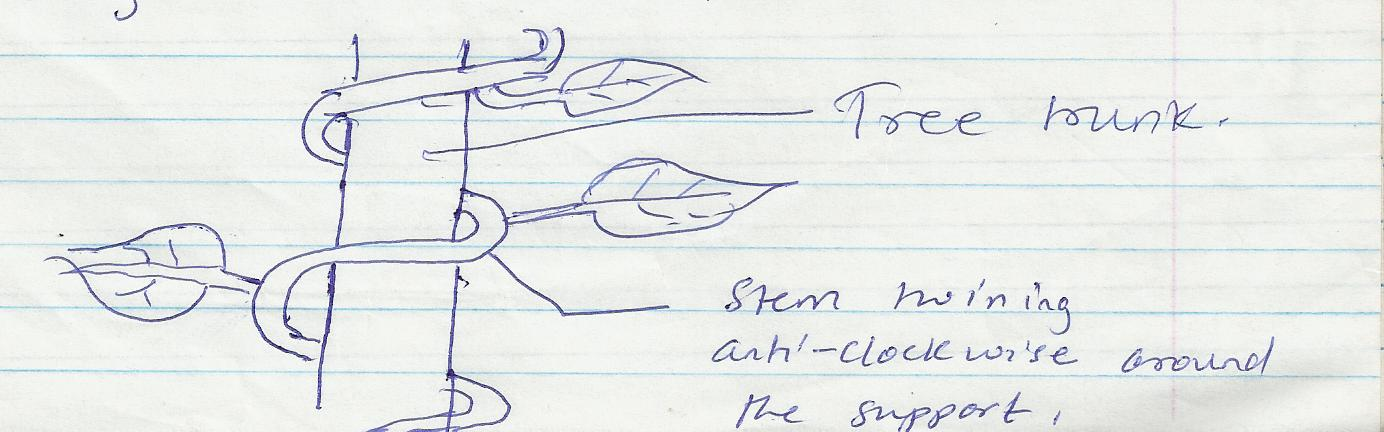 Tree trunk.
Stem twining
anti-clockwise around
the support.